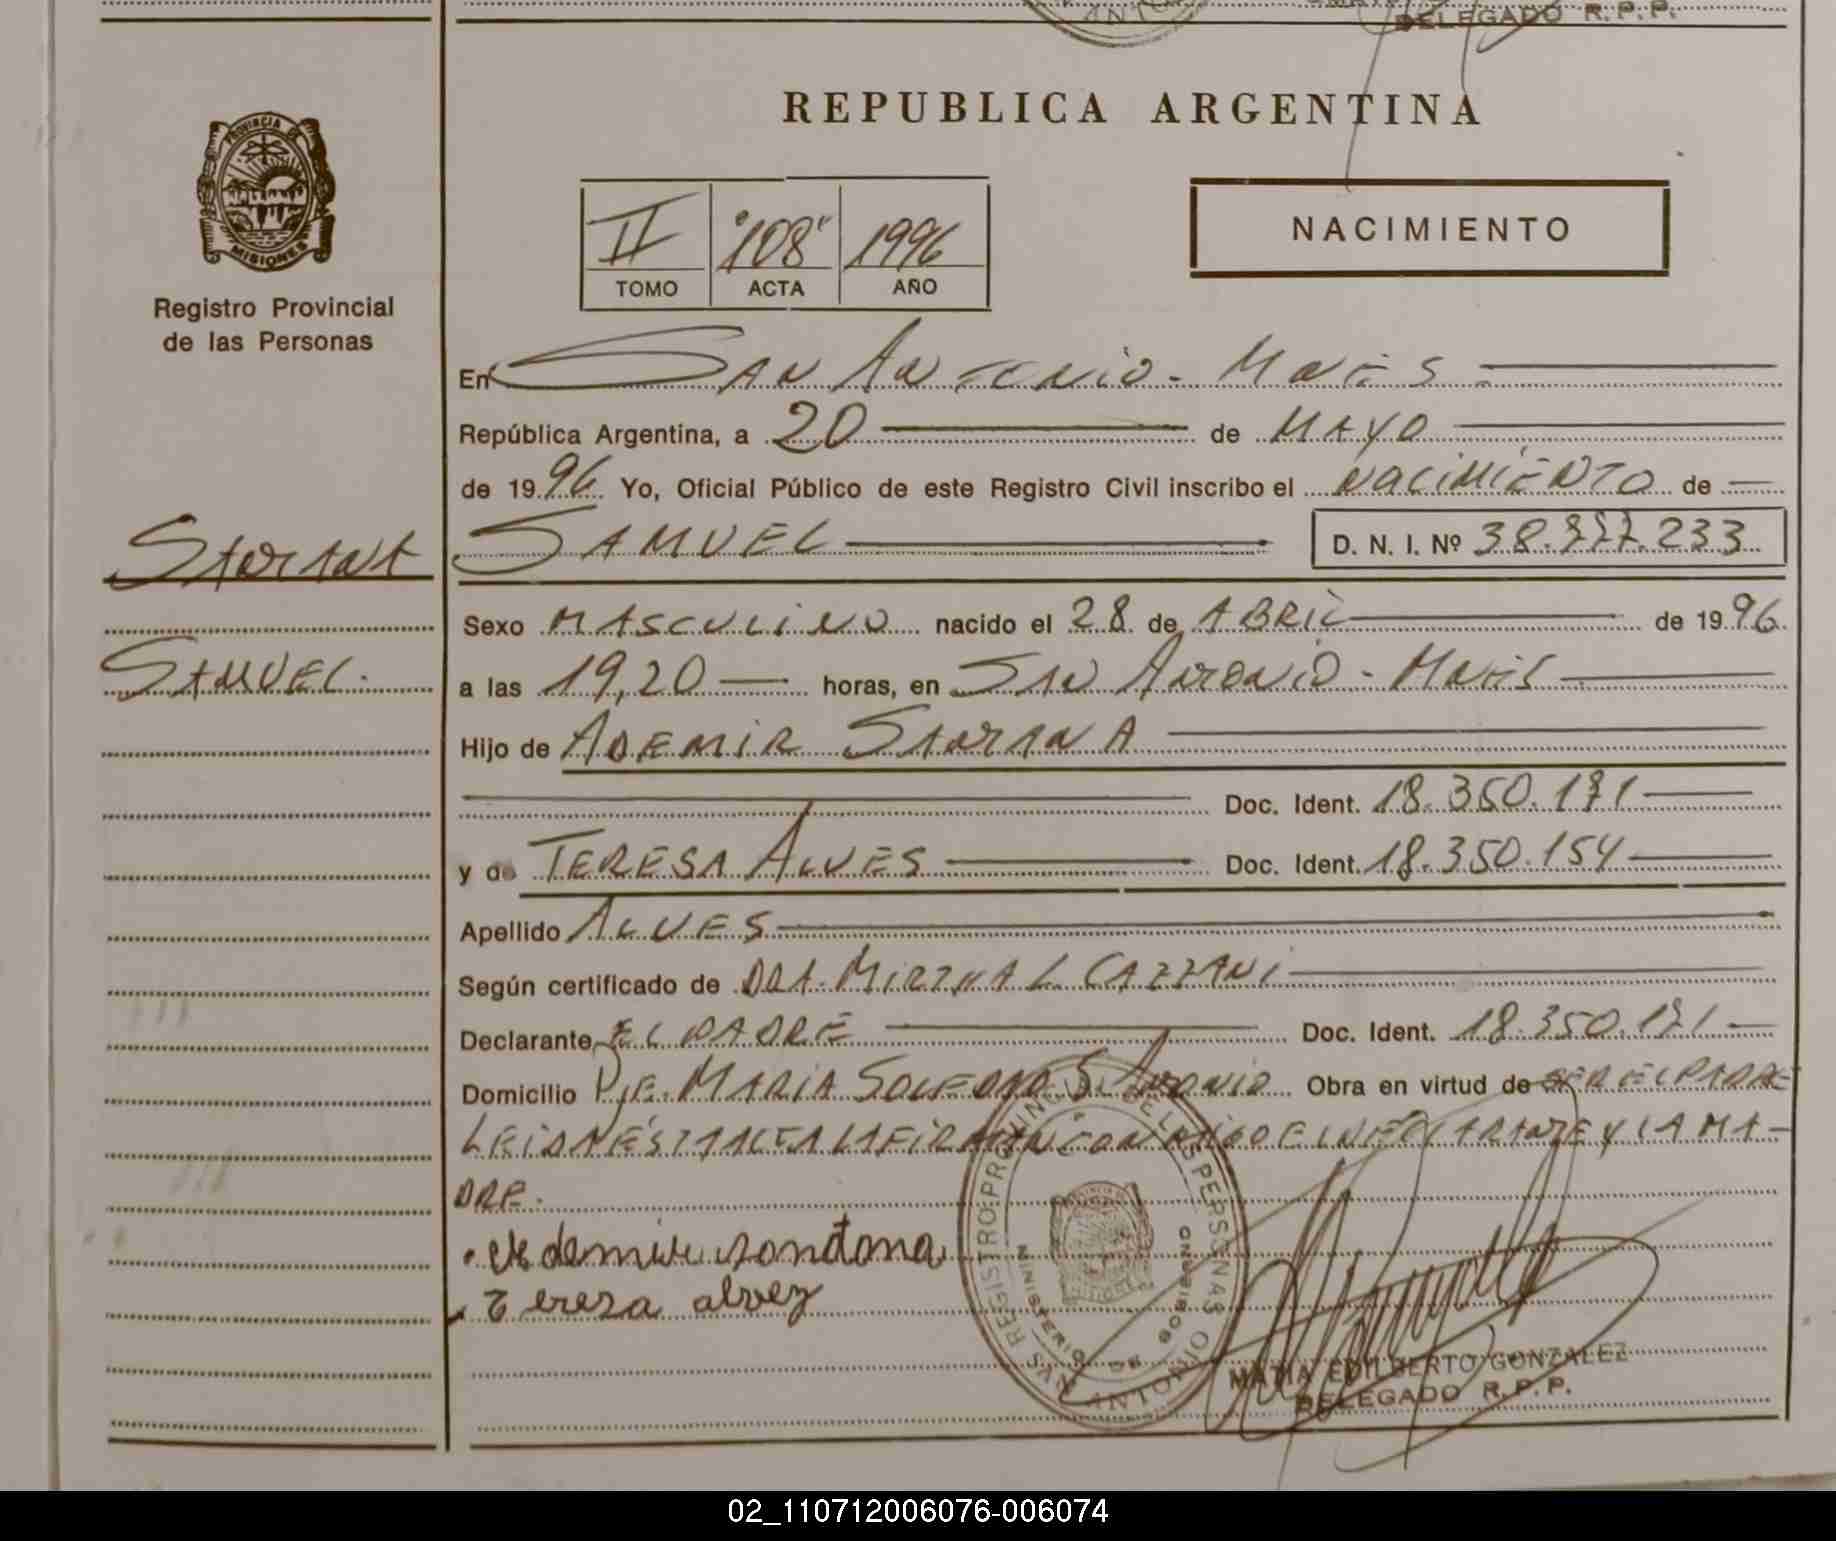 DELEGADO R.P.P.
REPUBLICA ARGENTINA
PROVINCIA DE
MISIONES
Registro Provincial
de las Personas
II "108" 1996
TOMO ACTA AÑO
NACIMIENTO
En SAN ANTONIO - MNES
República Argentina, a 20 de MAYO
de 1996 Yo, Oficial Público de este Registro Civil inscribo el NACIMIENTO de
SAMUEL D. N. I. Nº 38.777.233
SAMUEL.
Sexo MASCULINO nacido el 28 de ABRIL de 1996
a las 19,20 horas, en SAN ANTONIO - MNES
Hijo de ADEMIR SANTANA
Doc. Ident. 18.350.171
y de TERESA ALVES Doc. Ident. 18.350.154
Apellido ALVES
Según certificado de DRA. MIRTHA L. CAZZANI
Declarante EL PADRE Doc. Ident. 18.350.171
Domicilio PJE. MARIA SOLEDAD S. ANTONIO Obra en virtud de SER EL PADRE
LEIDA ESTA ACTA LA FIRMAN CONMIGO EL DECLARANTE Y LA MA-
DRE.
Ademir santana
tereza alvez
REGISTRO PROVINCIAL DE LAS PERSONAS
MINISTERIO DE GOBIERNO
SAN ANTONIO
MATIA EDILBERTO GONZALEZ
DELEGADO R.P.P.
02_110712006076-006074